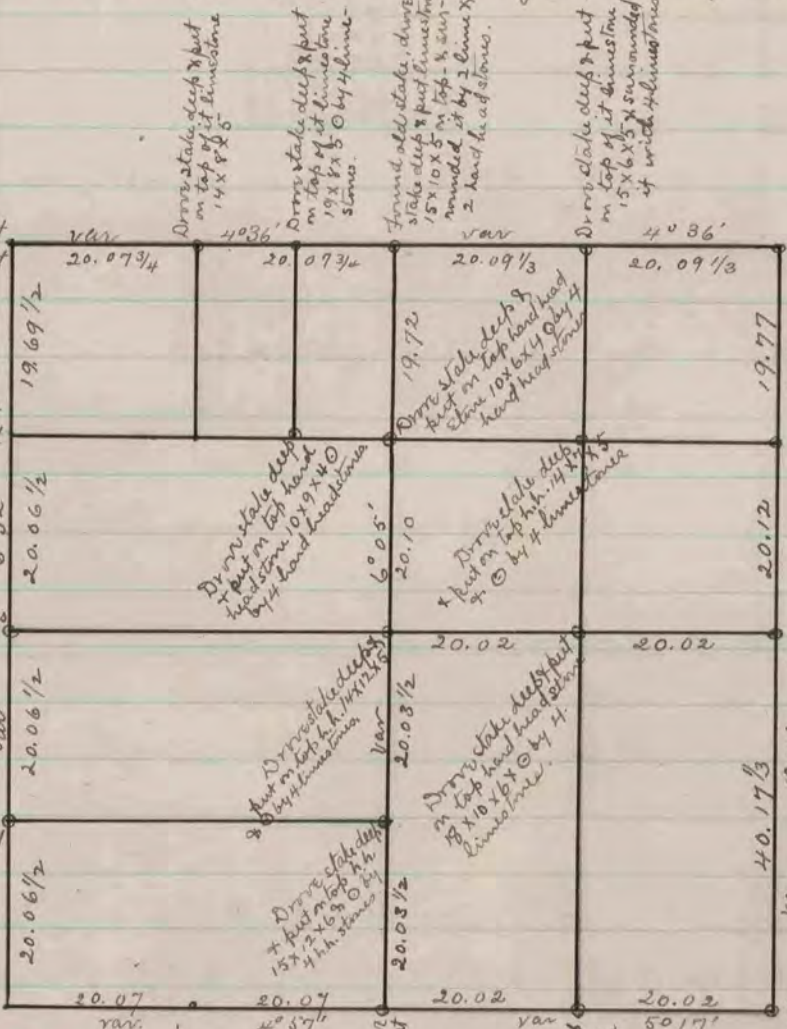 Drove stake deep & put
on top of it limestone
14 x 8 x 5
Drove stake deep & put
on top of it limestone
19 x 8 x 5 ⊙ by 4 lime-
stones.
Found old stake, drove
stake deep & put limestone
15 x 10 x 5 on top & sur-
rounded it by 2 lime &
2 hard head stones.
Drove stake deep & put
on top of it limestone
15 x 6 x 5 & surrounded
it with 4 limestones
var 4° 36' var 4° 36'
20.07 3/4 20.07 3/4 20.09 1/3 20.09 1/3
19.69 1/2
19.72
Drove stake deep &
put on top hard head
stone 10 x 6 x 4 ⊙ by 4
hard head stones
19.77
20.06 1/2
Drove stake deep
& put on top hard
headstone 10 x 9 x 4 ⊙
by 4 hard headstones
6° 05'
20.10
Drove stake deep
& put on top h.h. 14 x 7 x 5
& ⊙ by 4 limestones
20.12
20.02 20.02
20.06 1/2
Drove stake deep &
put on top h.h. 14 x 12 x 5
& ⊙ by 4 limestones
var
20.03 1/2
Drove stake deep & put
on top hard head stone
18 x 10 x 6 x ⊙ by 4
limestones.
40.17 1/3
20.06 1/2
Drove stake deep
& put on top h.h.
15 x 12 x 6 & ⊙ by
4 h.h. stones
20.03 1/2
20.07 20.07 20.02 20.02
var 4° 57" var 5° 17'